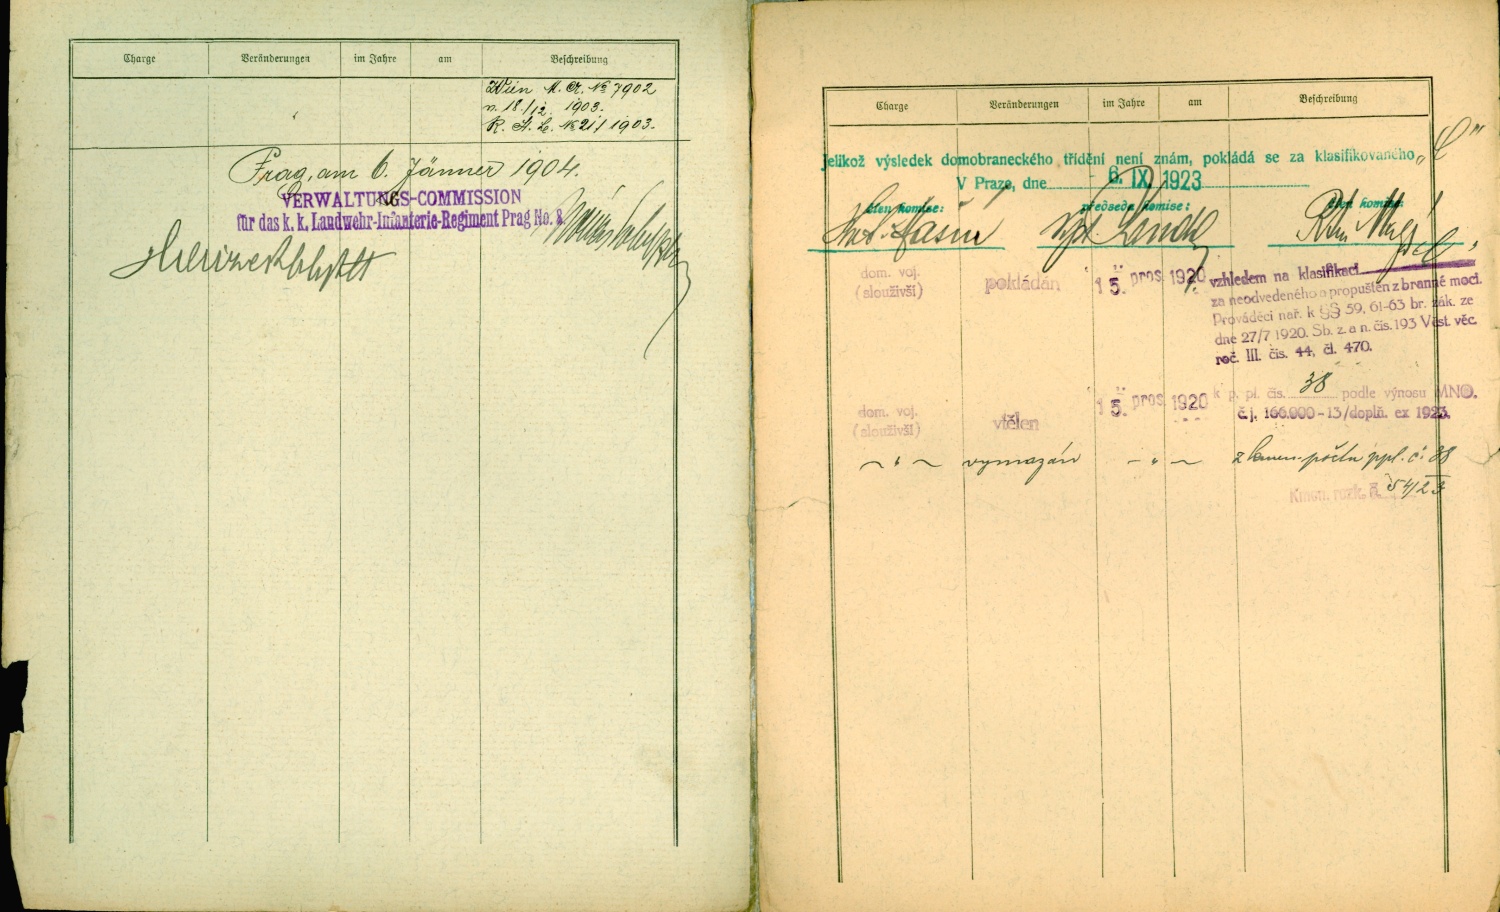 Charge Veränderungen im Jahre am Beschreibung
Wien M. Cr. № 7902
v. 18./12. 1903.
R. A. L. № 21/1903.
Prag, am 6. Jänner 1904.
VERWALTUNGS-COMMISSION
für das k. k. Landwehr-Infanterie-Regiment Prag No. 8.
Charge Veränderungen im Jahre am Beschreibung
jelikož výsledek domobraneckého třídění není znám, pokládá se za klasifikovaného „C"
V Praze, dne 6. IX. 1923
člen komise: předseda komise: člen komise:
dom. voj.
(slouživší)
pokládán
15. pros. 1920
vzhledem na klasifikaci „C"
za neodvedeného a propuštěn z branné moci.
Prováděcí nař. k §§ 59, 61-63 br. zák. ze
dne 27/7 1920. Sb. z. a n. čís. 193 Věst. věc.
roč. III. čís. 44, čl. 470.
dom. voj.
(slouživší)
vtělen
15. pros. 1920
k p. pl. čís. 38 podle výnosu MNO.
č. j. 166.000-13/doplň. ex 1923.
— „ — vymazán — „ — z počtu ppl. č. 38
Kmen. rozk. č. 54/23